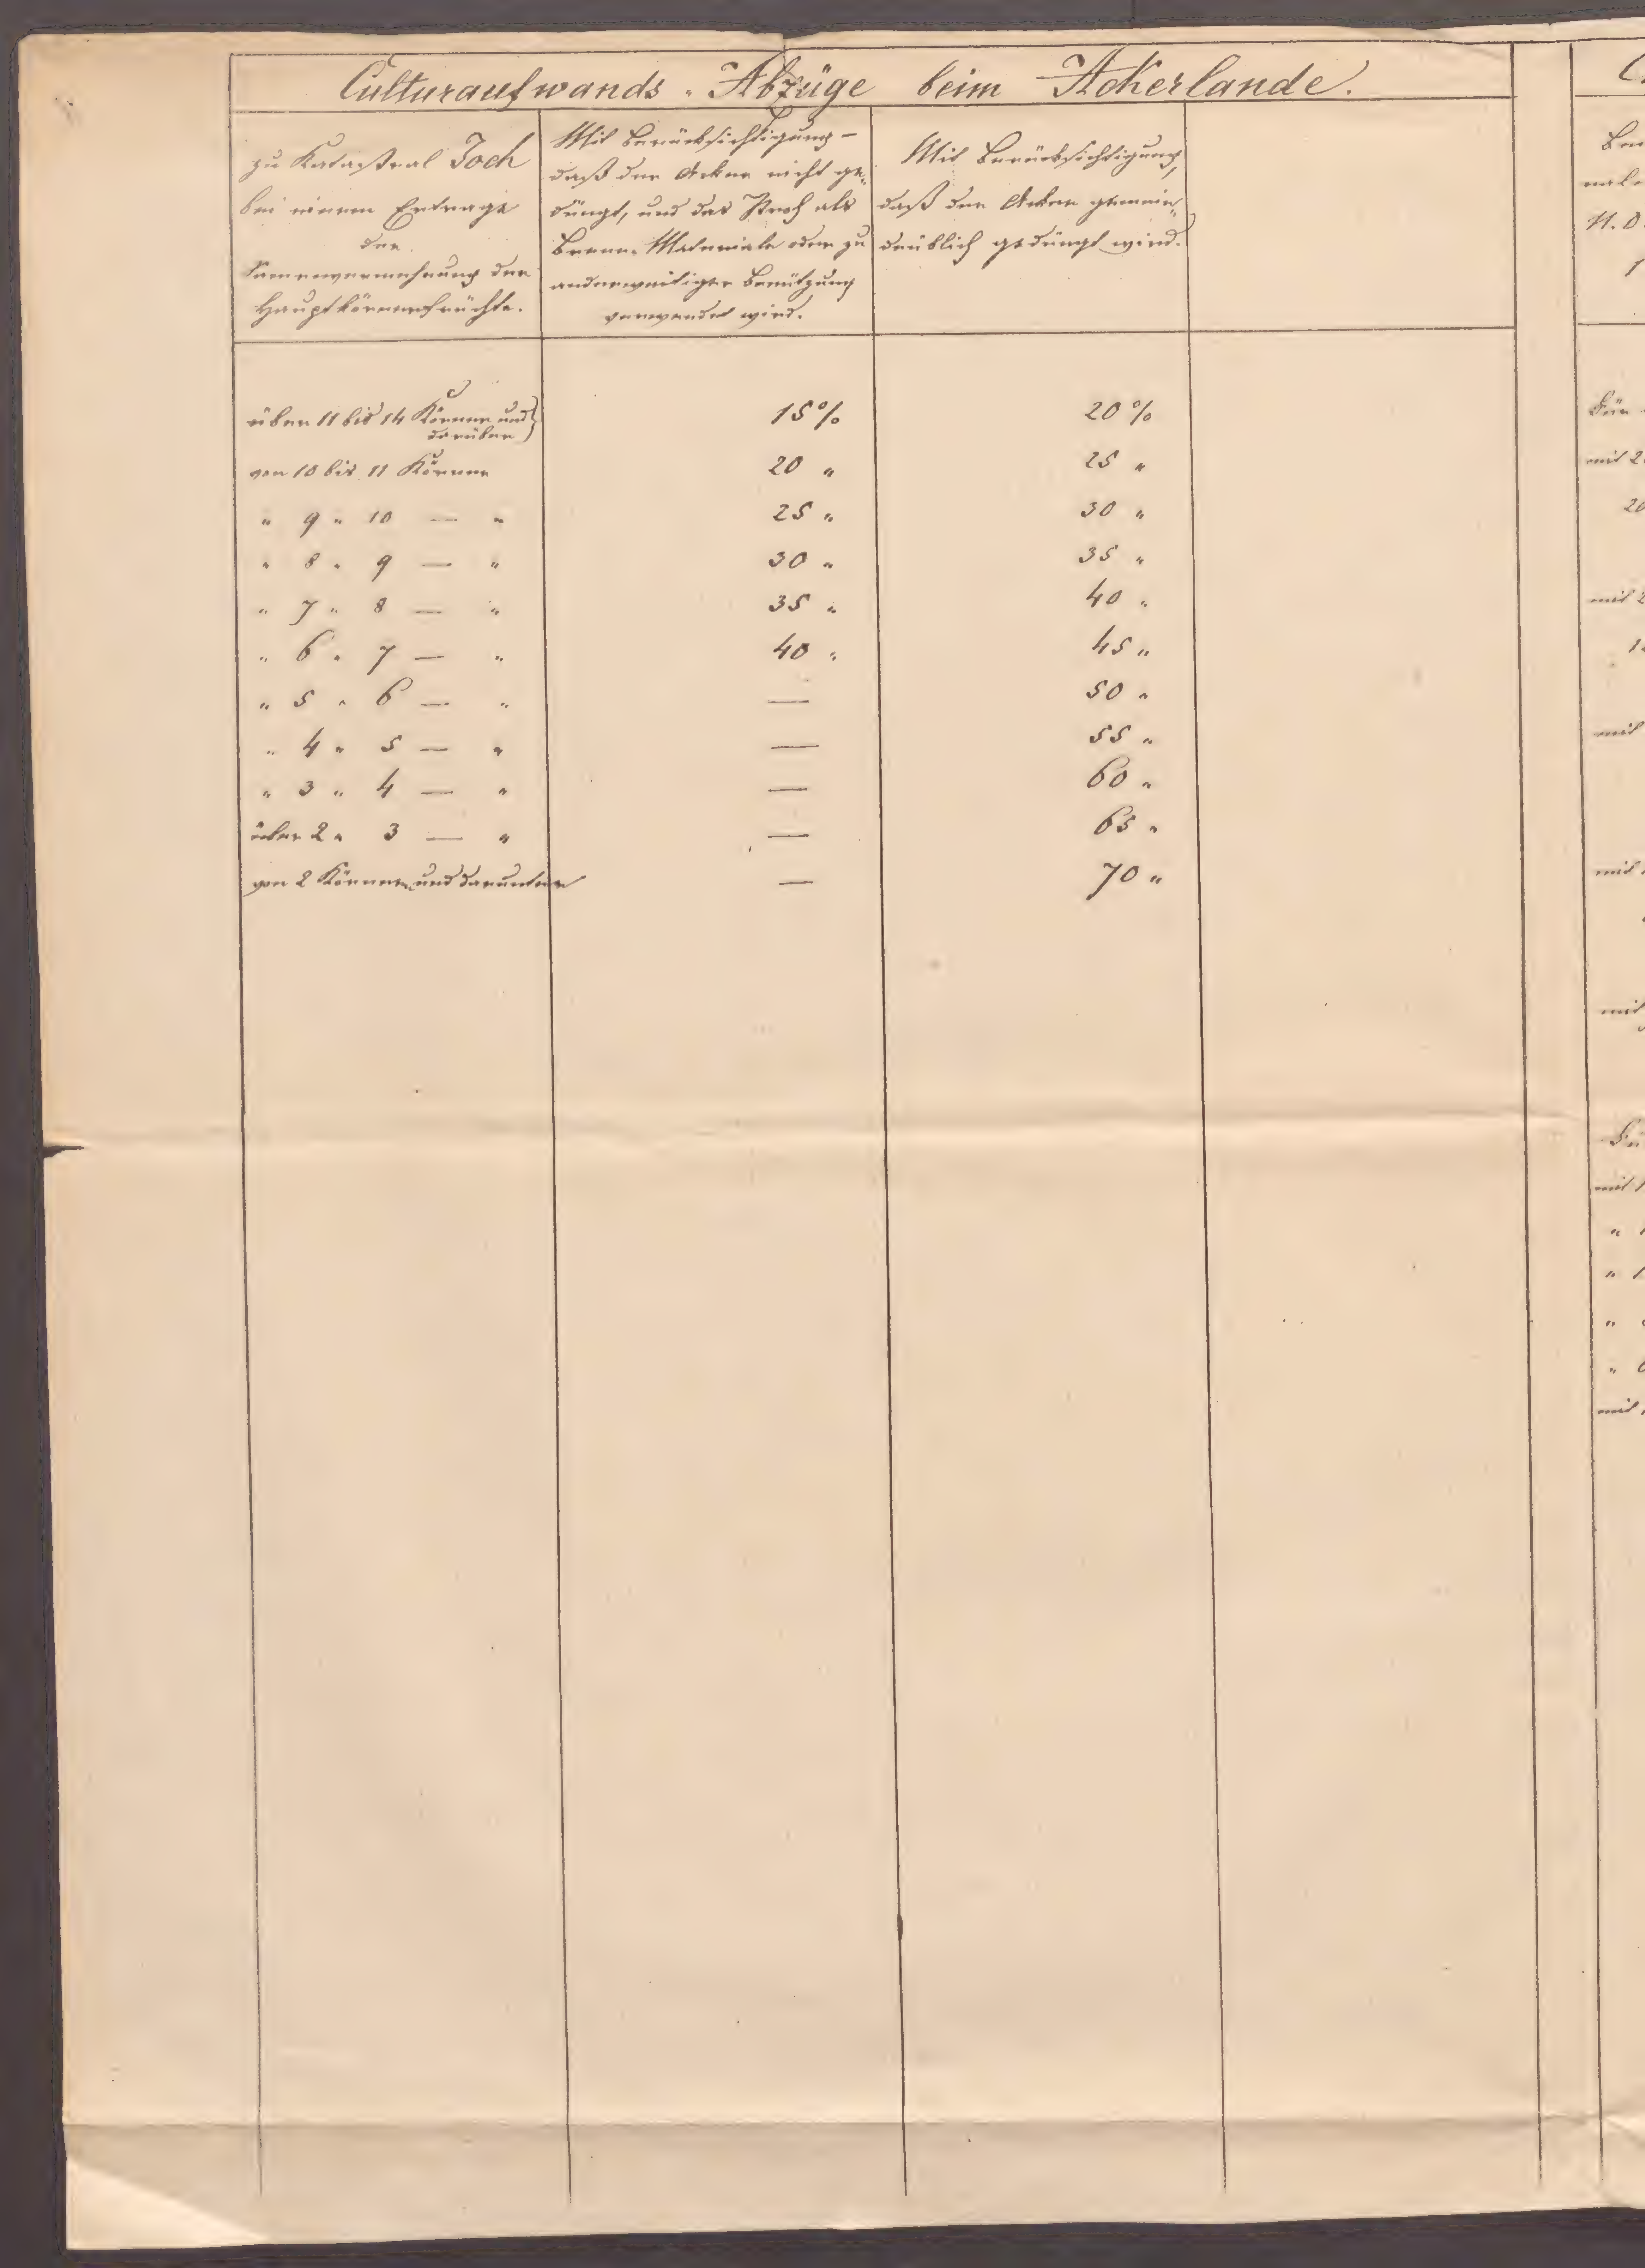 Culturaufwands-Abzüge beim Ackerlande.
zu Katastral Joch
bei einem Ertrage
der
Samenvermehrung der
Hauptkörnerfrüchte.
Mit Berücksichtigung –
daß der Acker nicht ge„
düngt, und das Stroh als
Brenn-Materiale oder zu
anderweitiger Benützung
verwendet wird.
Mit Berücksichtigung,
daß der Acker gemein„
deüblich gedüngt wird.
über 11 bis 14 Körner und } 15 % 20 %
darüber
von 10 bis 11 Körner 20 „ 25 „
„ 9 „ 10 — „ 25 „ 30 „
„ 8 „ 9 — „ 30 „ 35 „
„ 7 „ 8 — „ 35 „ 40 „
„ 6 „ 7 — „ 40 „ 45 „
„ 5 „ 6 — „ — 50 „
„ 4 „ 5 — „ — 55 „
„ 3 „ 4 — „ — 60 „
über 2 „ 3 — „ — 65 „
von 2 Körner und darunter — 70 „
N. O.
mit 2
20
mit 2
mit
mit
mit
mit 1
mit